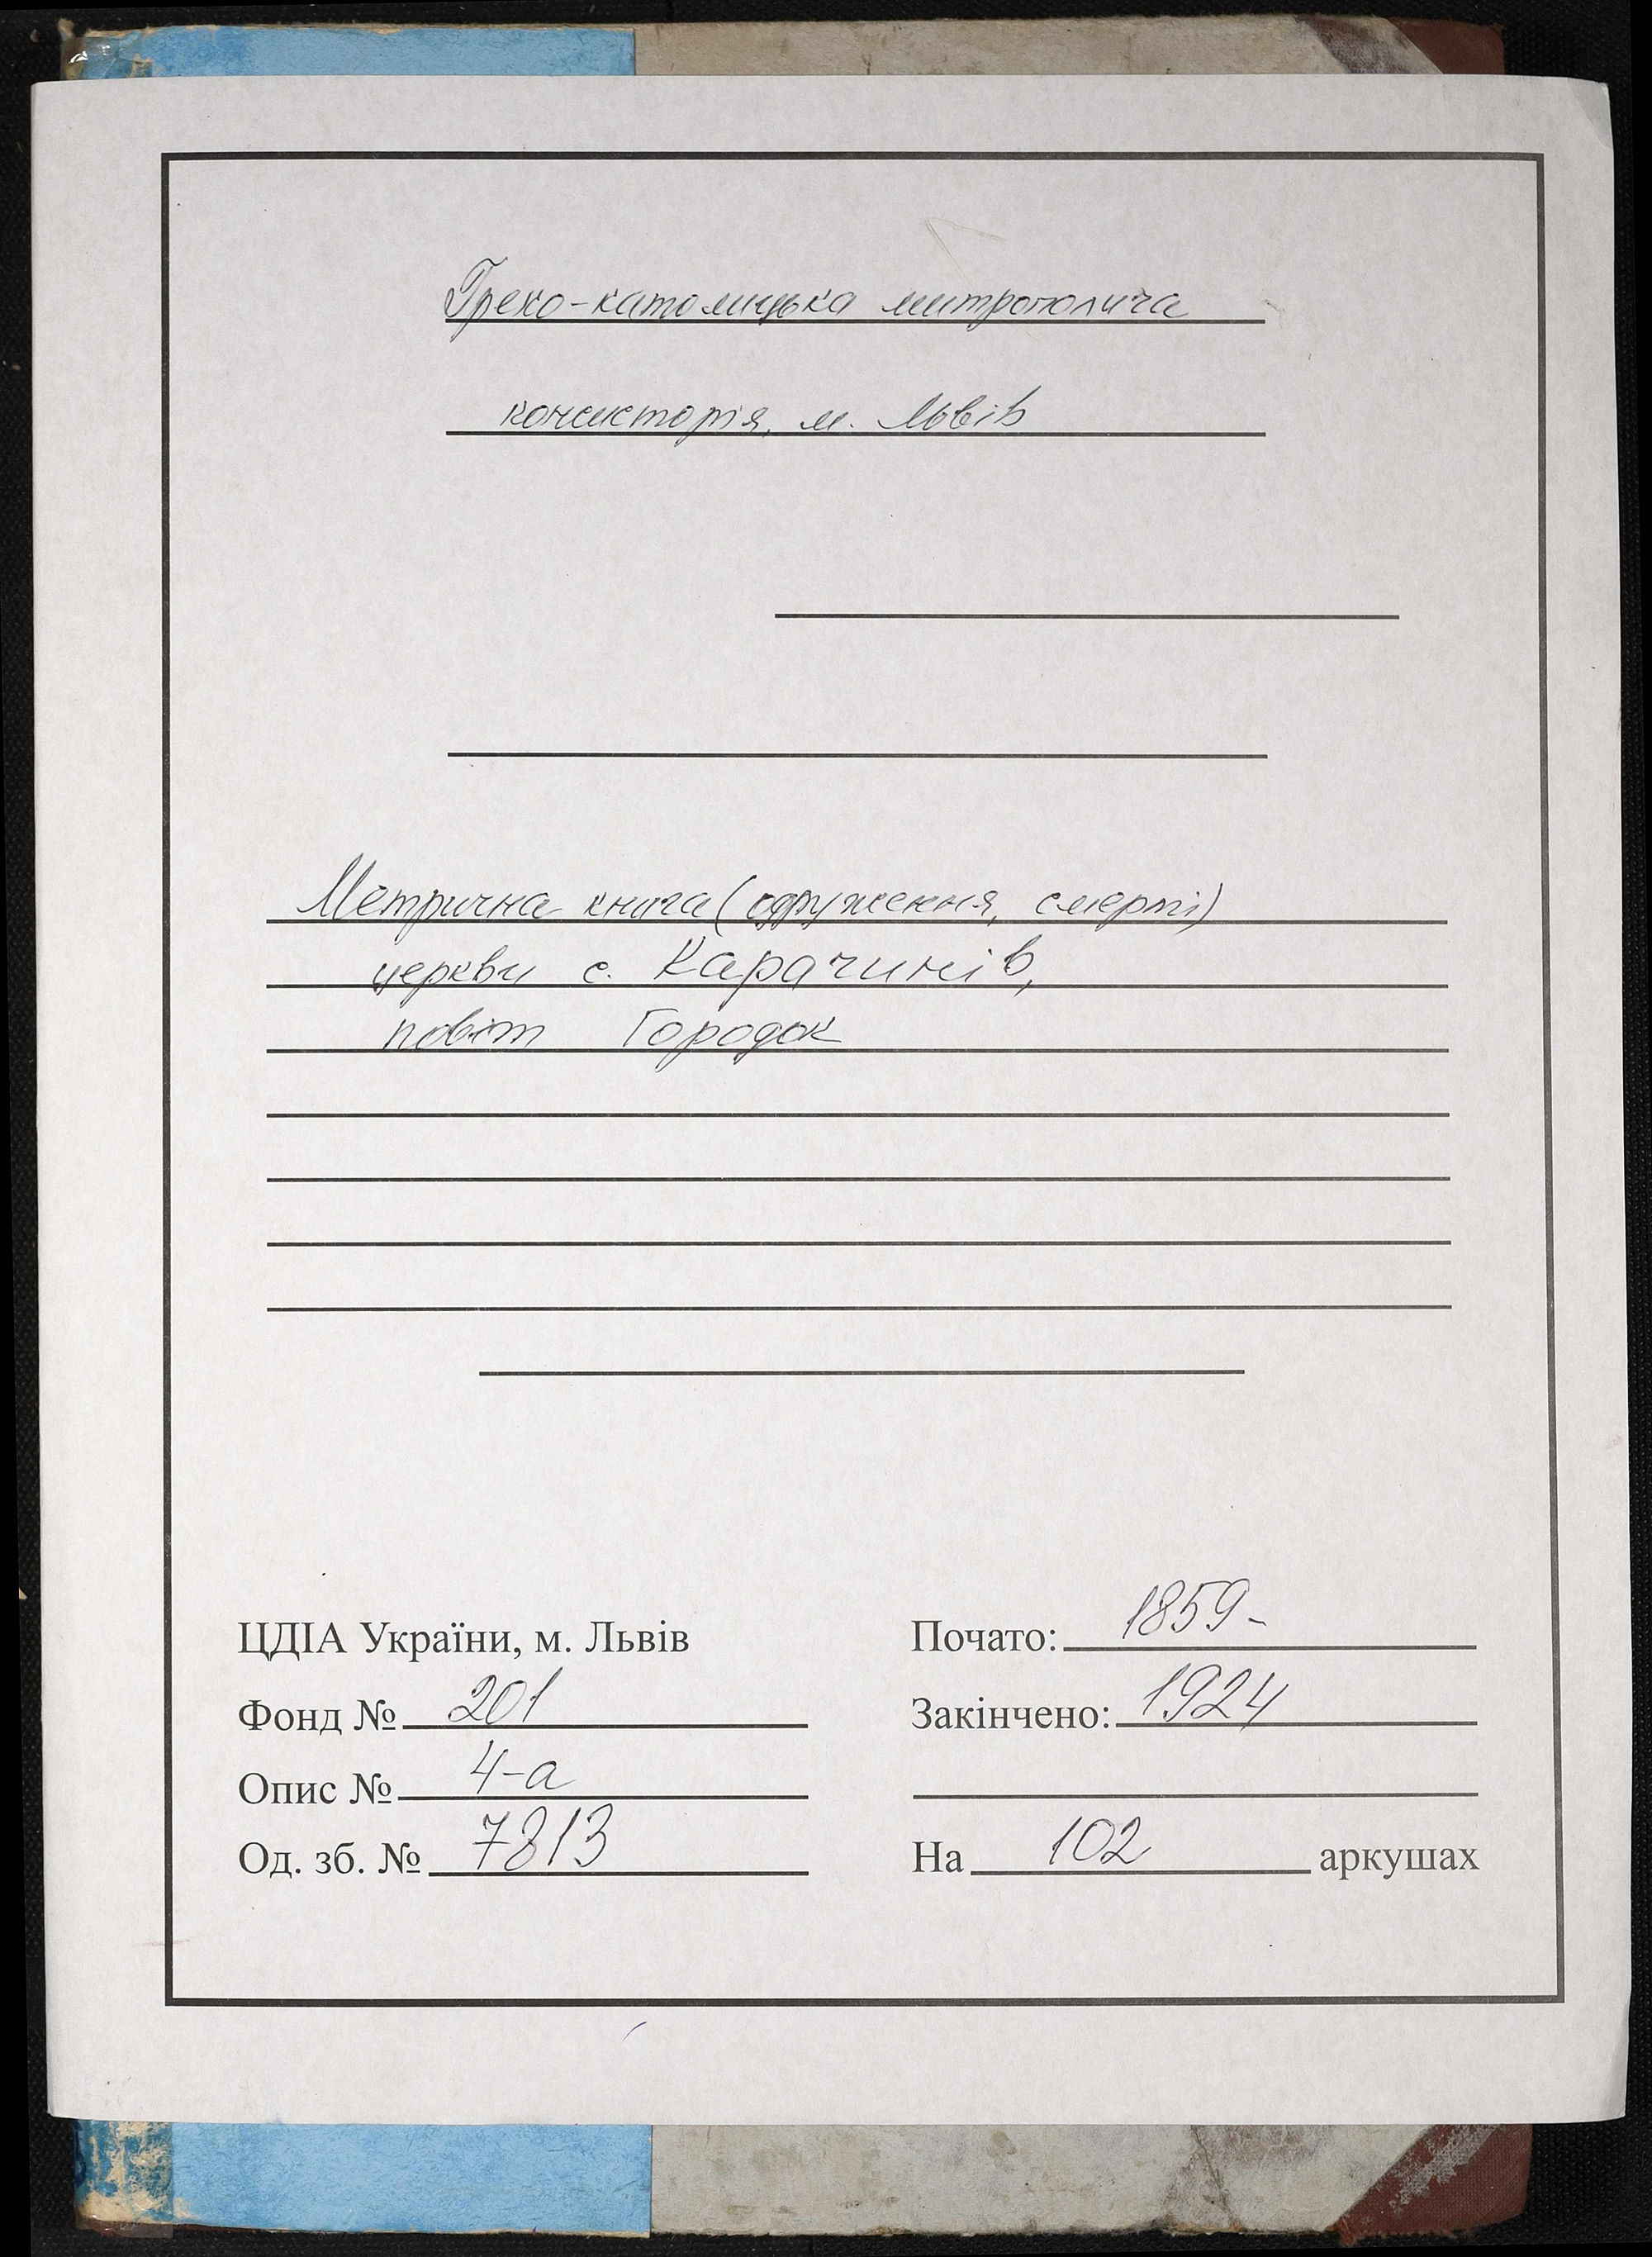 Греко-католицька митрополича
консисторія, м. Львів
Метрична книга (одруження, смерті)
церкви с. Карачинів,
повіт Городок
ЦДІА України, м. Львів
Фонд № 201
Опис № 4-а
Од. зб. № 7813
Почато: 1859-
Закінчено: 1924
На 102 аркушах